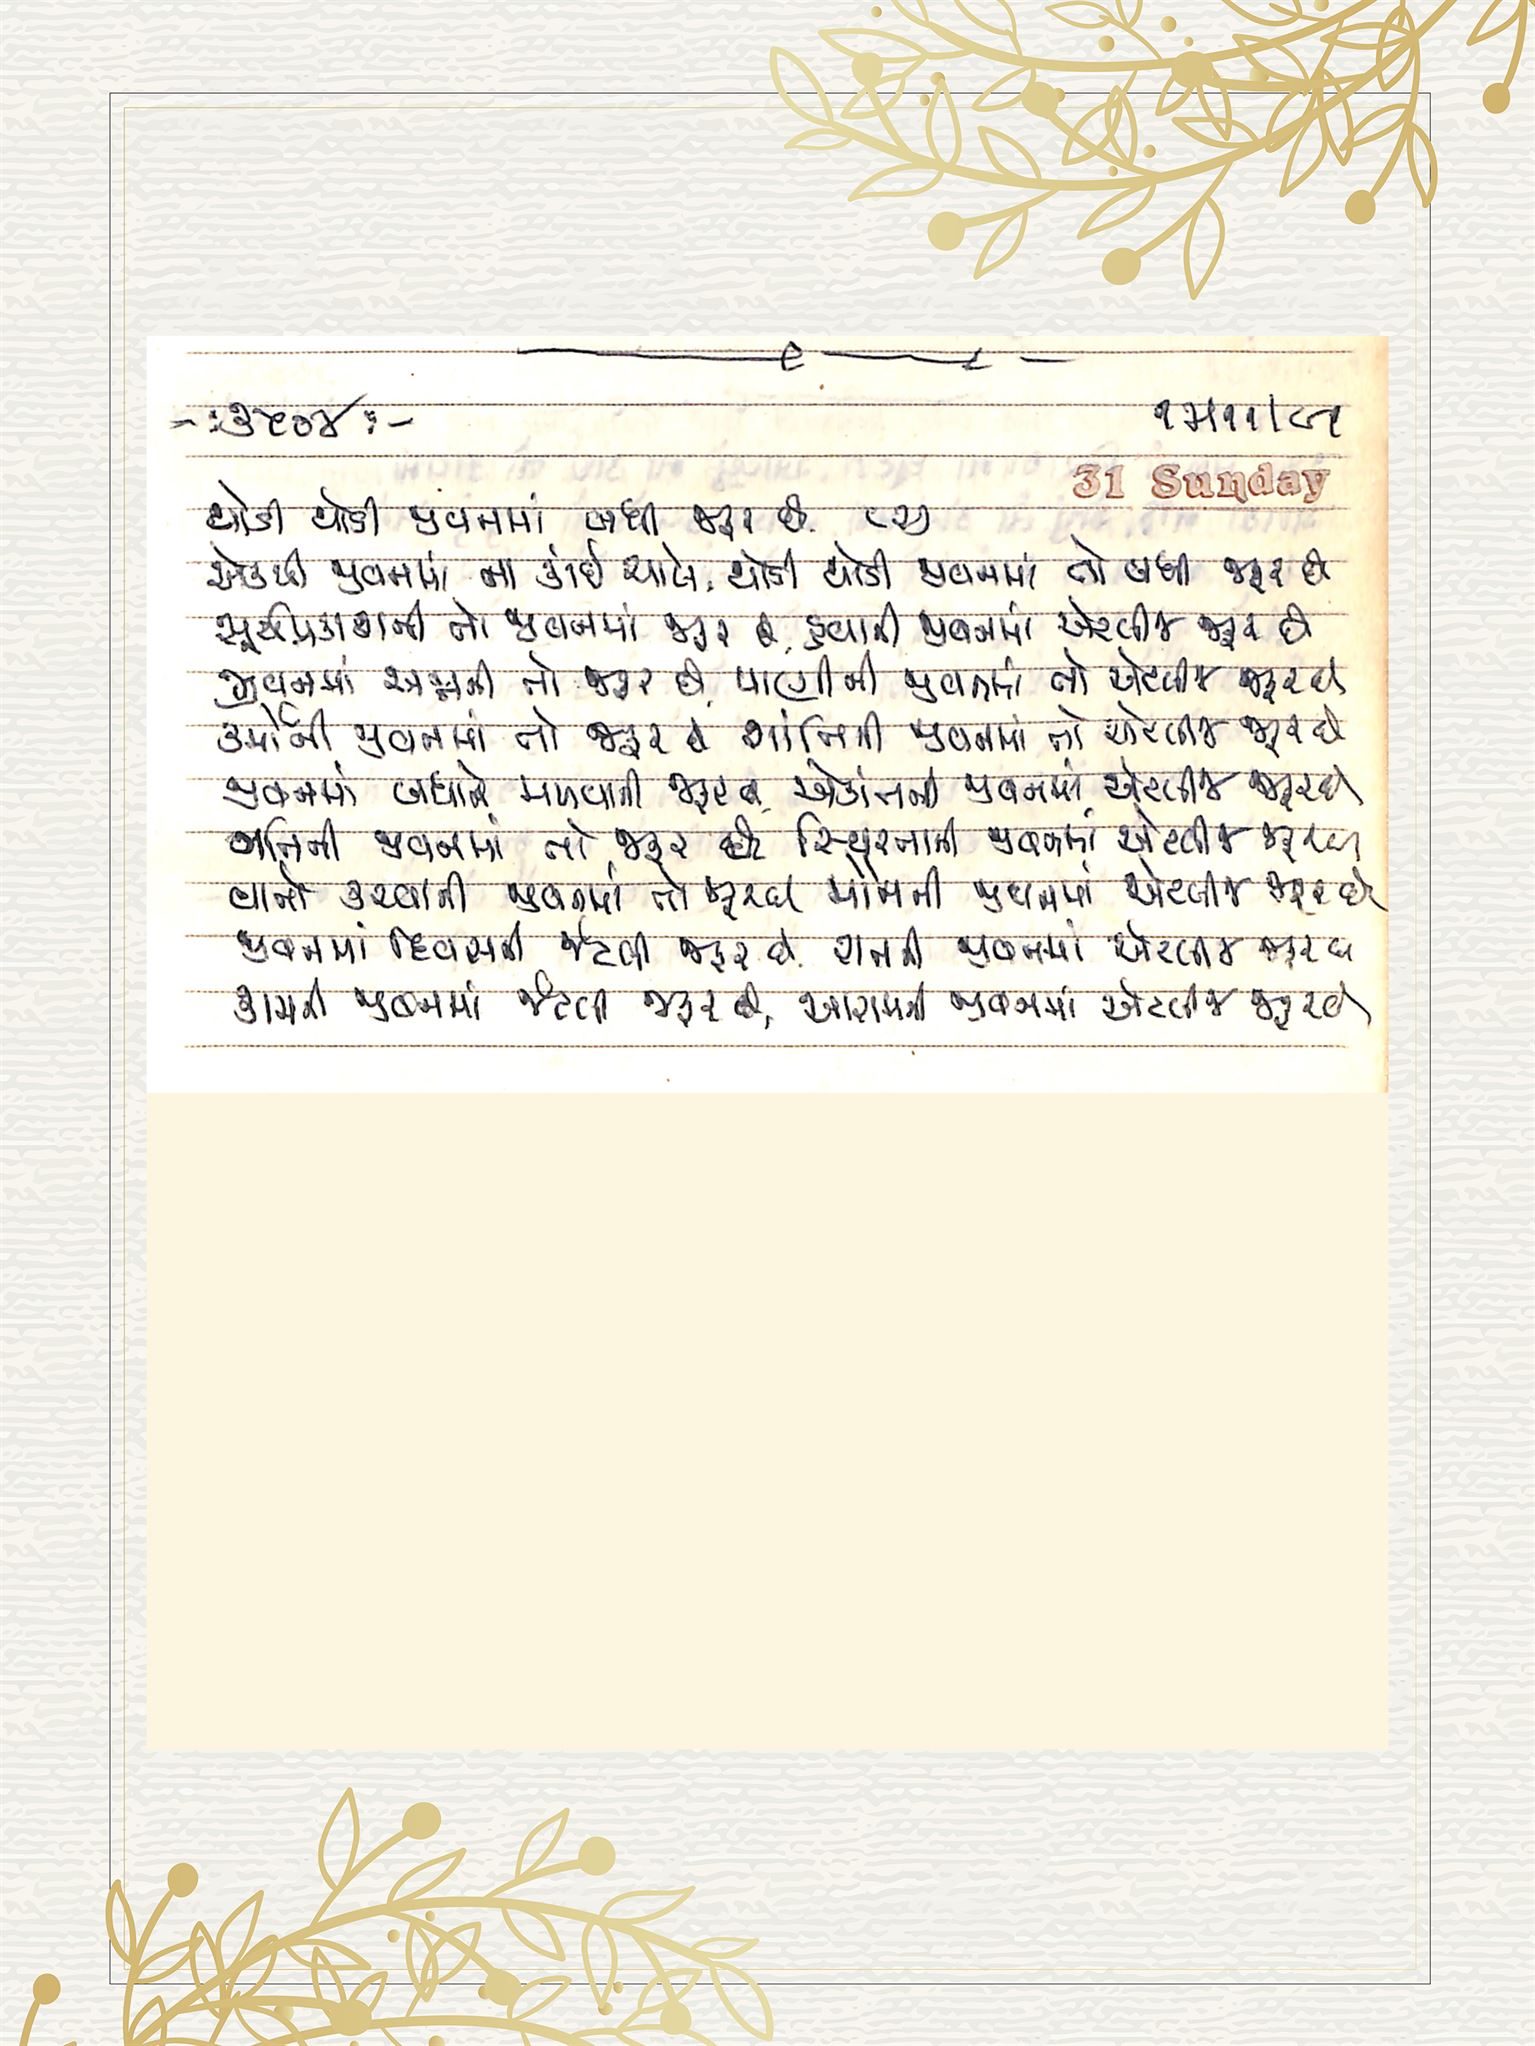 -: ૩૬૦૪ :-
31 Sunday
થોડી થોડી જીવનમાં બધી જરૂર છે. (૨)
એકથી જીવનમાં ના કાંઈ ચાલે, થોડી થોડી જીવનમાં તો બધી જરૂર છે
સૂર્યપ્રકાશની તો જીવનમાં જરૂર છે, હવાની જીવનમાં એટલીજ જરૂર છે
જીવનમાં અન્નની તો જરૂર છે, પાણીની જીવનમાં તો એટલીજ જરૂર છે
કર્મોની જીવનમાં તો જરૂર છે શાંતિની જીવનમાં તો એટલીજ જરૂર છે
જીવનમાં બધાને મળવાની જરૂર છે, એકાંતની જીવનમાં એટલીજ જરૂર છે
ગતિની જીવનમાં તો જરૂર છે સ્થિરતાની જીવનમાં એટલીજ જરૂર છે
વાતો કરવાની જીવનમાં તો જરૂર છે મૌનની જીવનમાં એટલીજ જરૂર છે
જીવનમાં દિવસની જેટલી જરૂર છે. રાતની જીવનમાં એટલીજ જરૂર છે
કામની જીવનમાં જેટલી જરૂર છે, આરામની જીવનમાં એટલીજ જરૂર છે